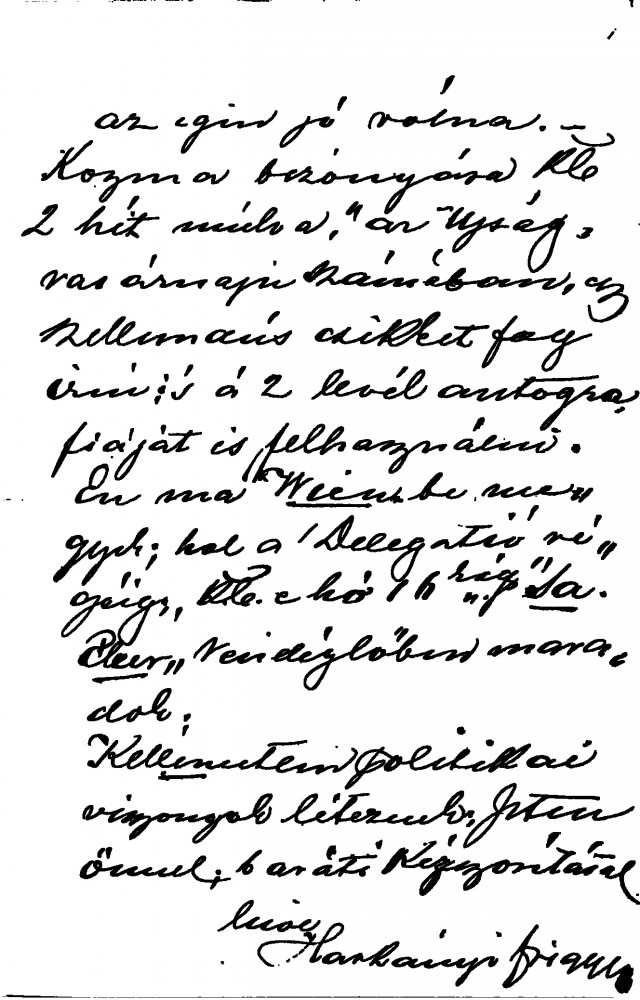 az igen jó volna. –
Kozma bizonyára kb
2 hét múlva, "az Ujság"
vasárnapi számában, egy
szellemdús czikket fog
irni; és a 2 levél autogra-
fiáját is felhasználni.
Én ma Wienbe me-
gyek; hol a Delegatió vé-
géig, kb. e hó 16 ig "Sa-
cher" vendéglőben mara-
dok.
Kellemetlen politikai
viszonyok léteznek; Isten
önnel; baráti kézszorítással
hive
Harkányi Frigyes